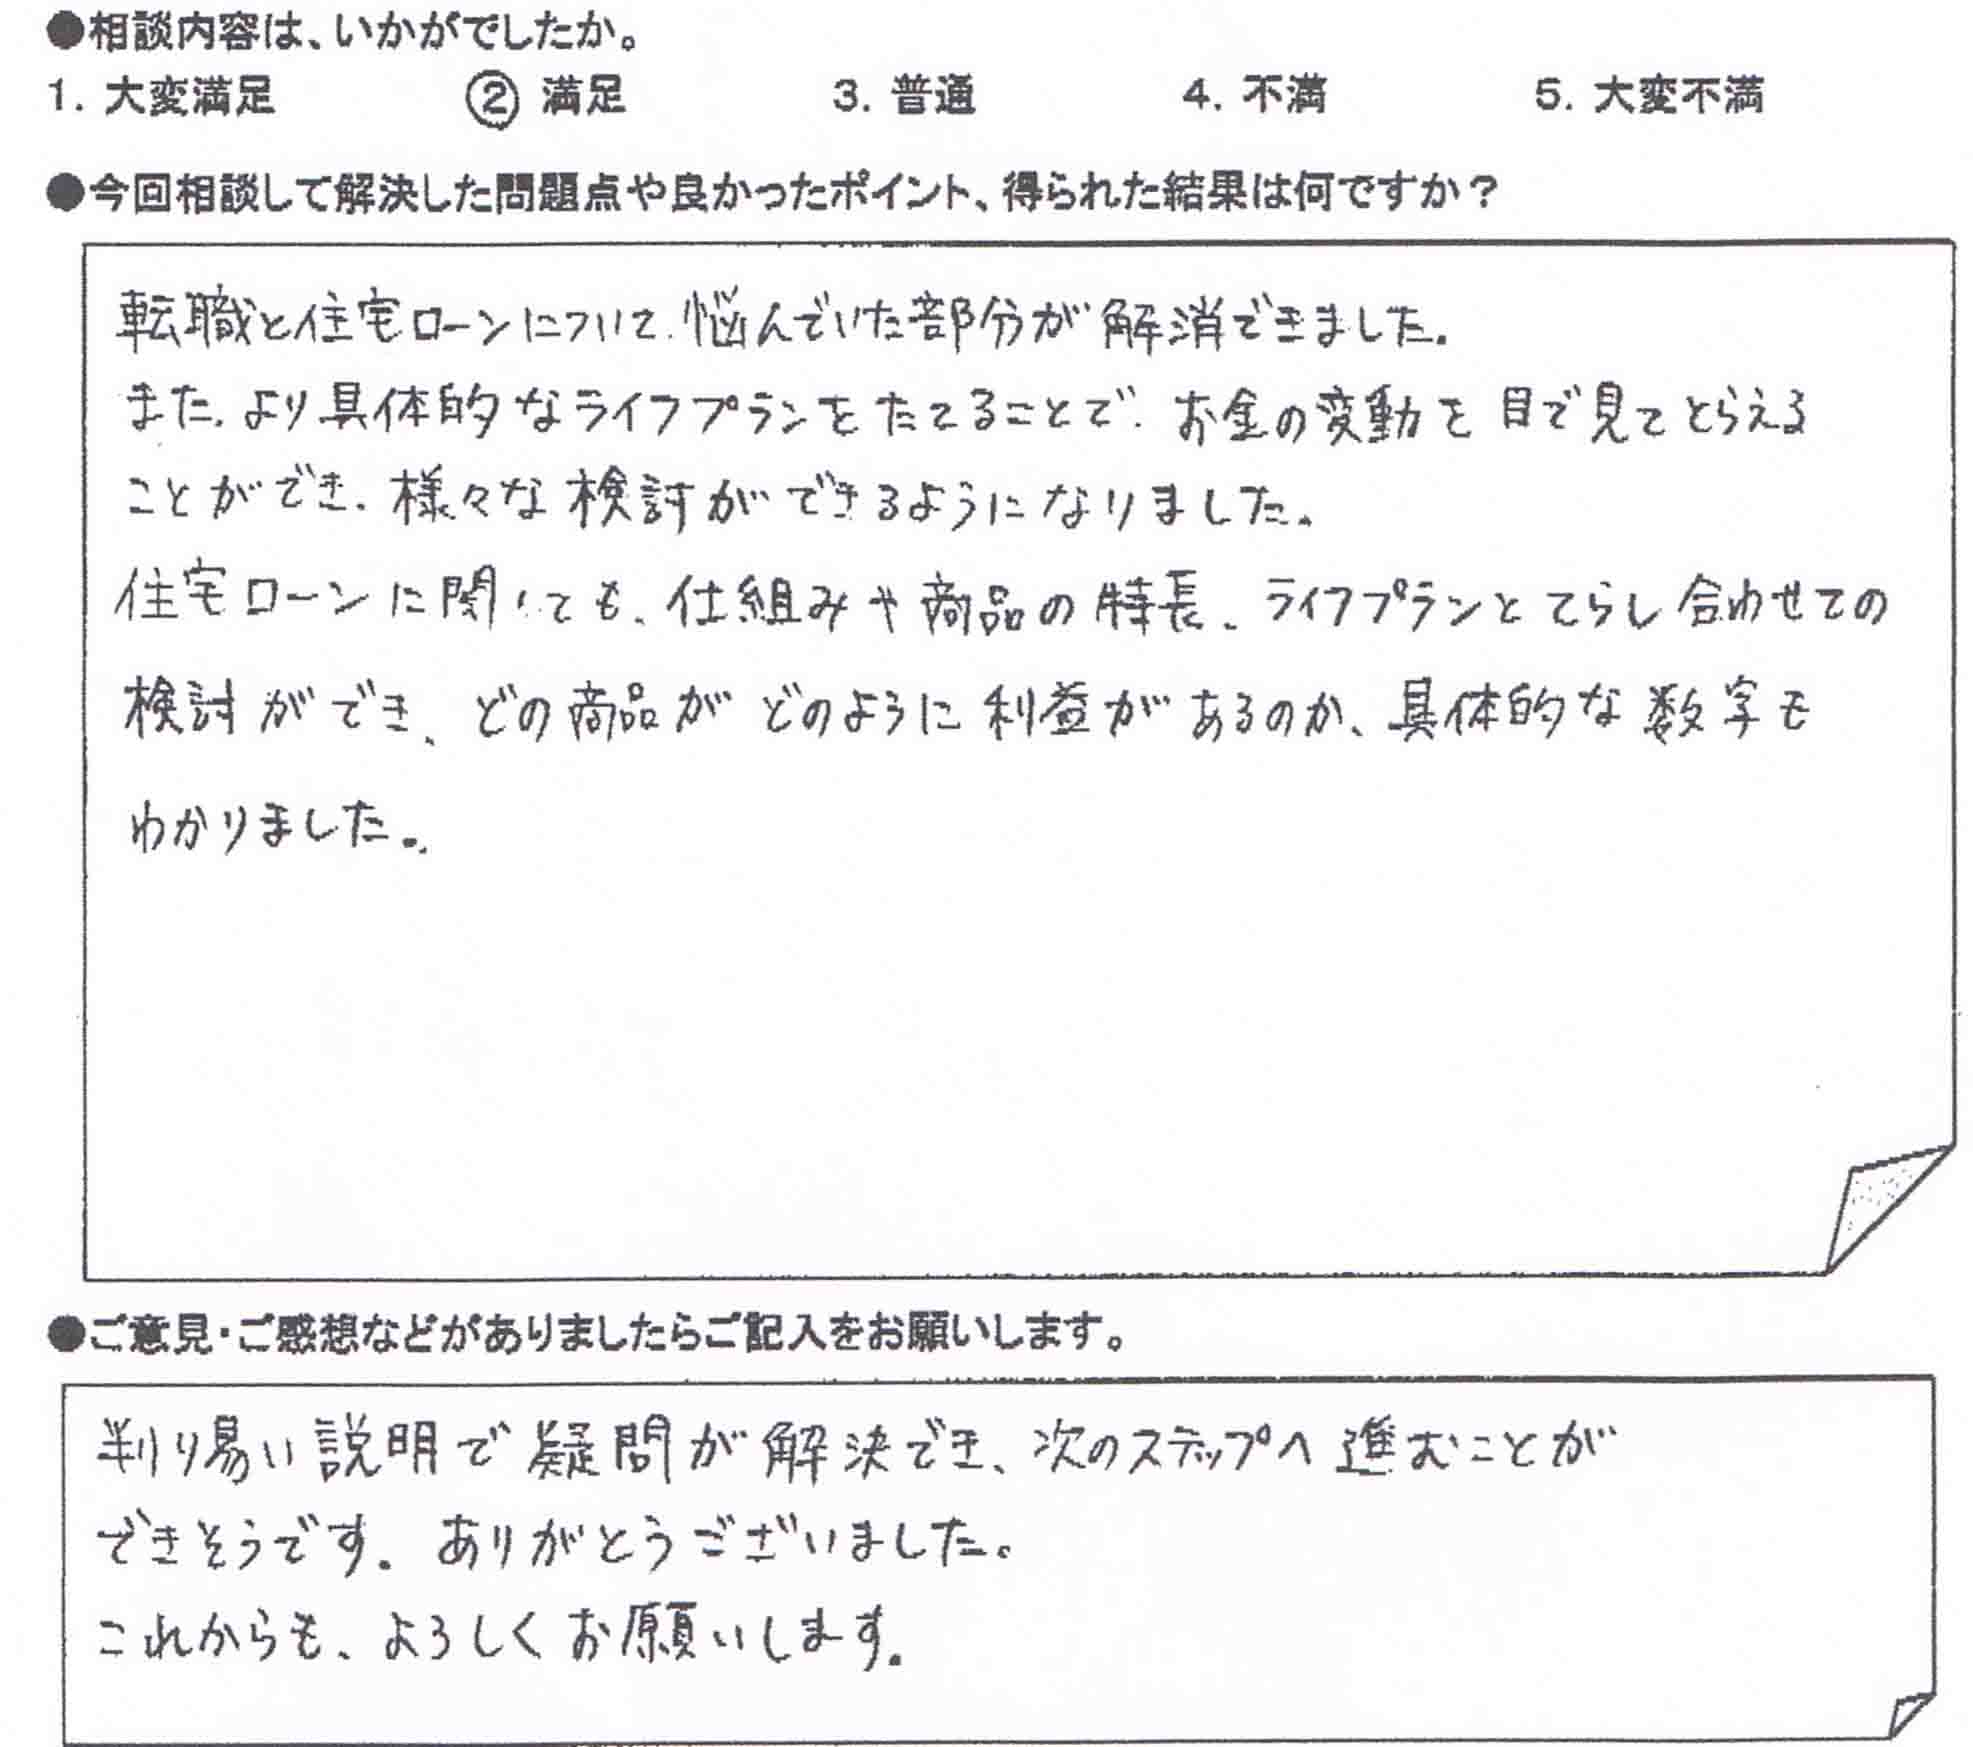 ●相談内容は、いかがでしたか。
1. 大変満足 ② 満足 3. 普通 4. 不満 5. 大変不満
●今回相談して解決した問題点や良かったポイント、得られた結果は何ですか？
転職と住宅ローンについて、悩んでいた部分が解消できました。
また、より具体的なライフプランをたてることで、お金の変動を目で見てとらえる
ことができ、様々な検討ができるようになりました。
住宅ローンに関しても、仕組みや商品の特長、ライフプランとてらし合わせての
検討ができ、どの商品がどのように利益があるのか、具体的な数字も
わかりました。
●ご意見・ご感想などがありましたらご記入をお願いします。
判り易い説明で疑問が解決でき、次のステップへ進むことが
できそうです。ありがとうございました。
これからも、よろしくお願いします。